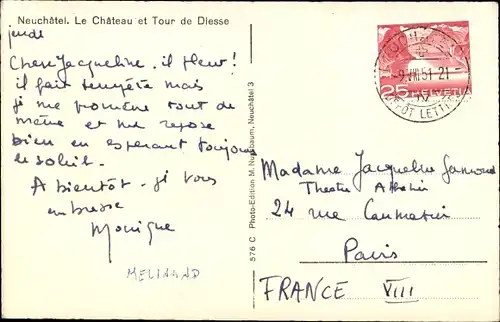 Neuchâtel. Le Château et Tour de Diesse
jeudi
Chere Jacqueline. il pleut!
il fait tempête mais
je me promène tout de
même et me repose
bien en esperant toujours
le soleil.
A bientôt. je vous
embrasse
Monique
MELINAND
576 C Photo-Edition M. Nussbaum, Neuchâtel 3
-9.VIII.51-21
DÉPÔT LETTRES
25 HELVETIA
Madame Jacqueline
Theatre
24 rue Caumartin
Paris
FRANCE VIII